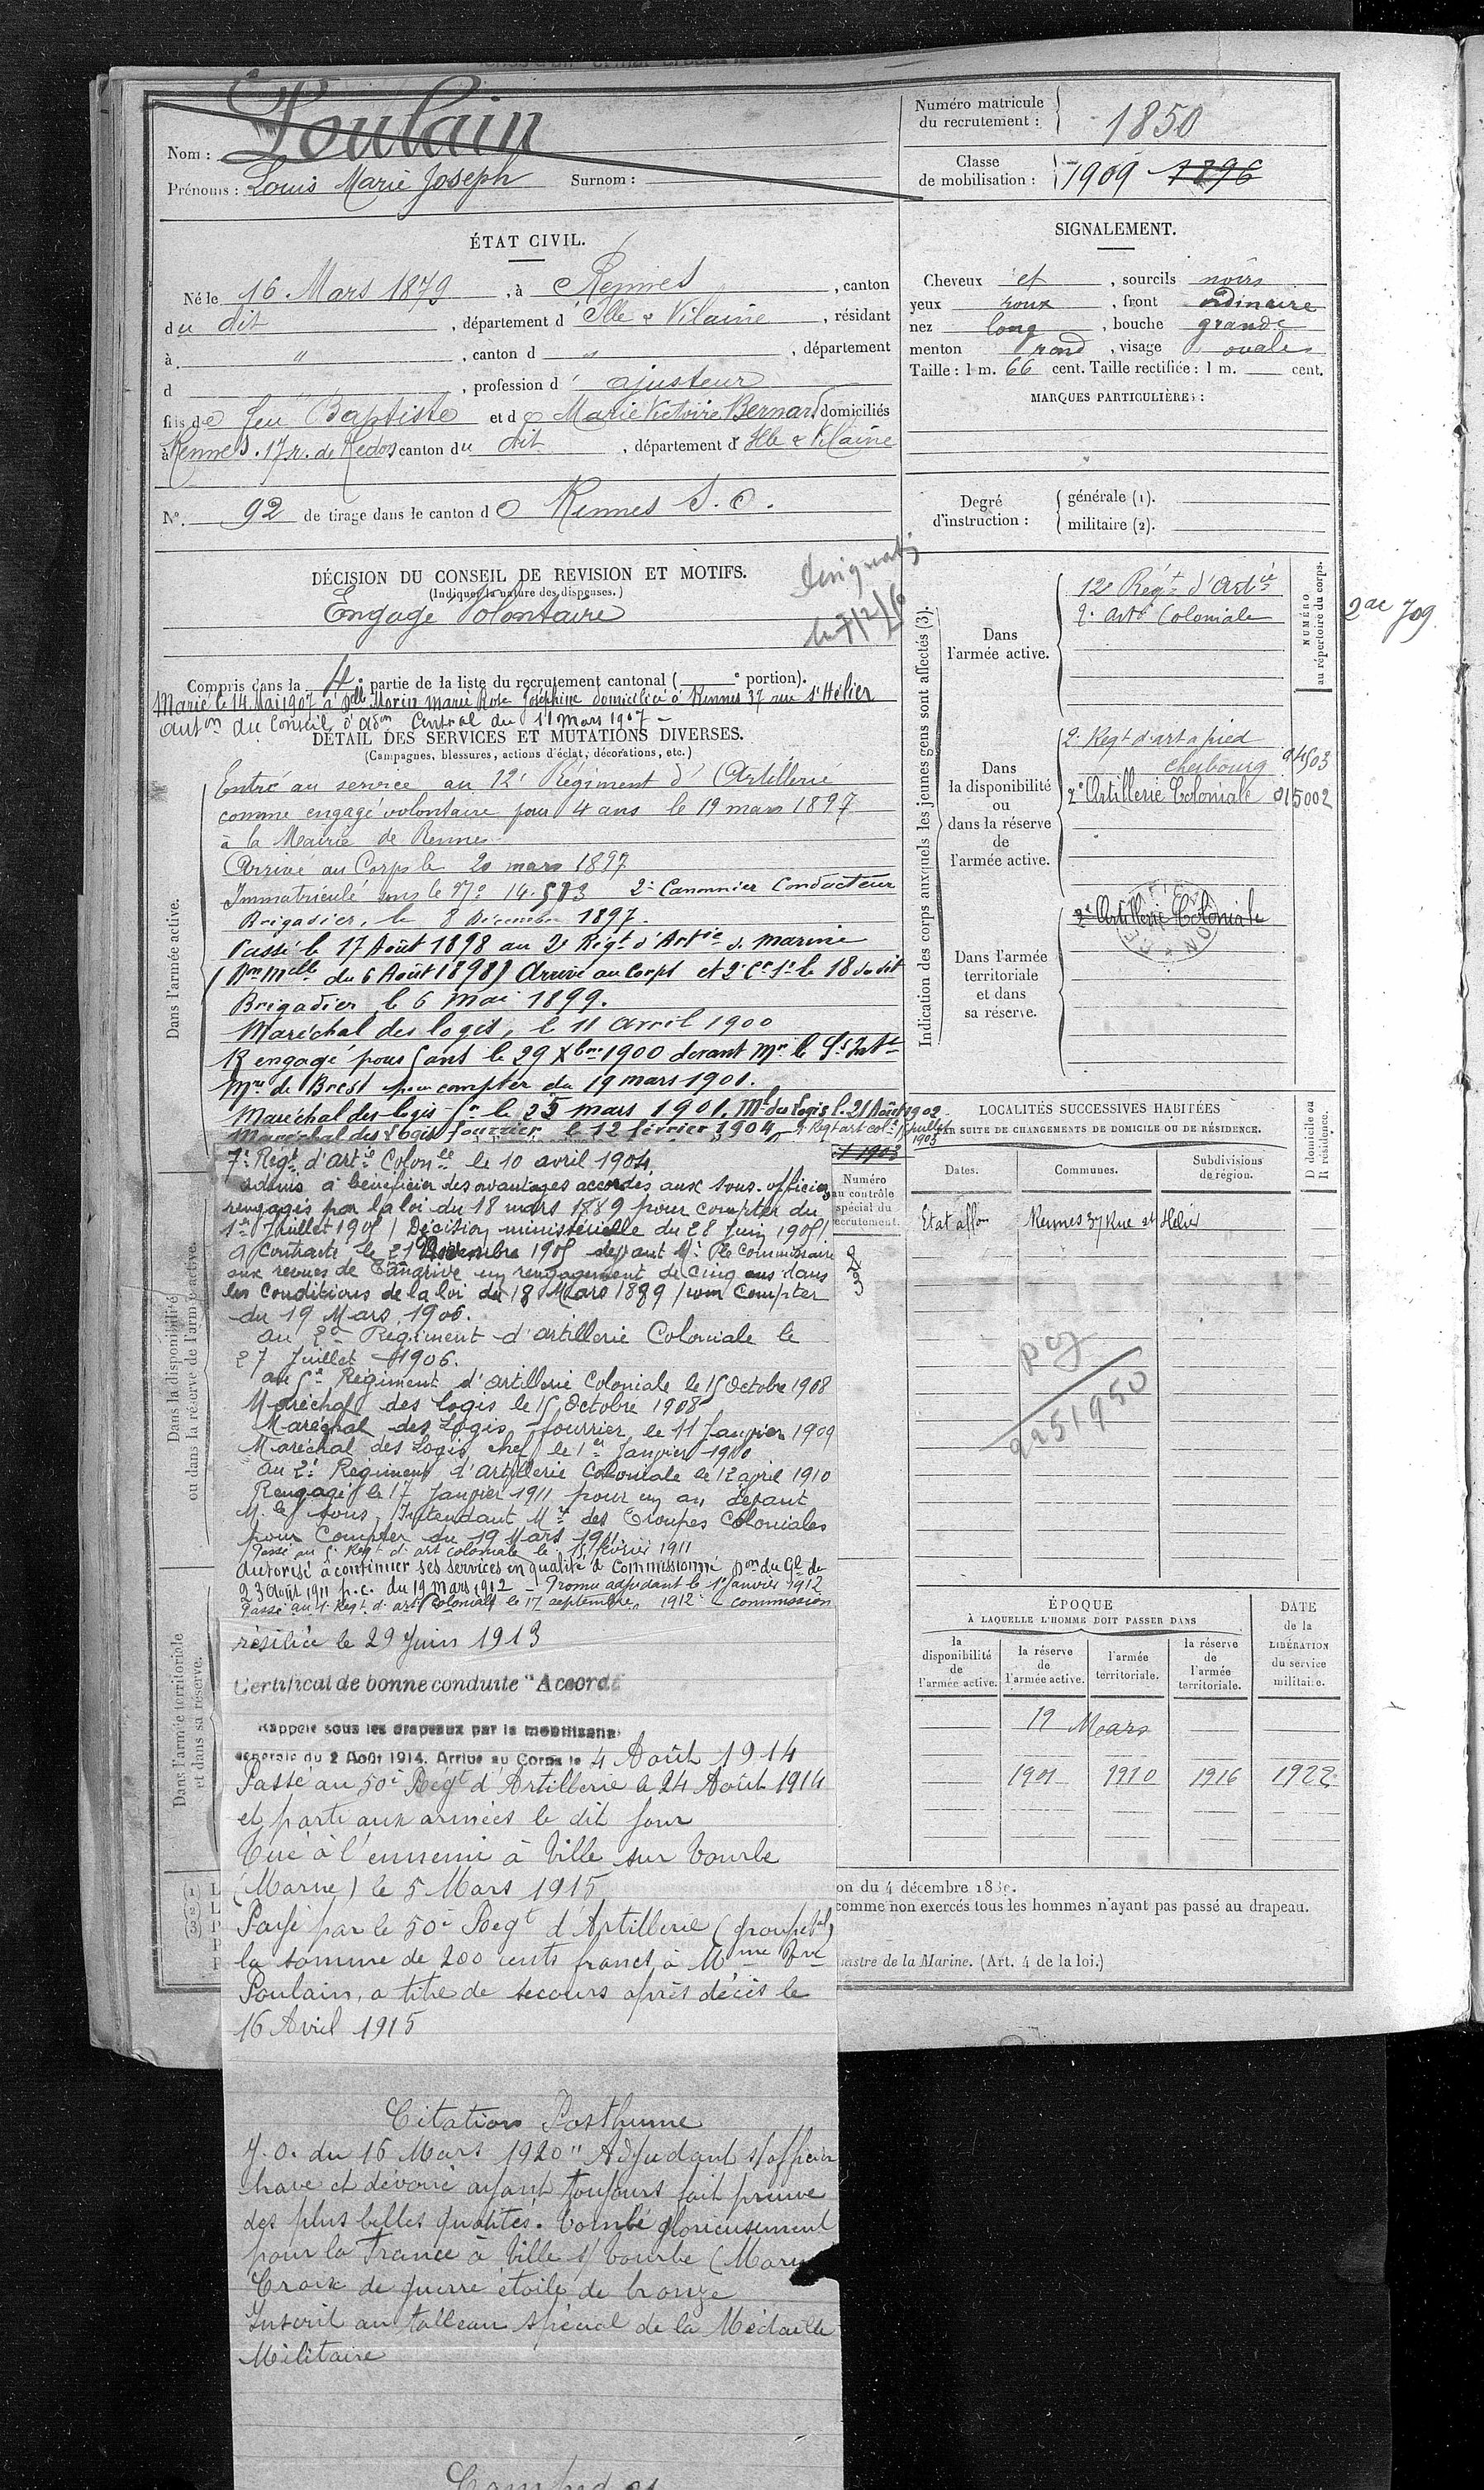 Nom : Poulain
Prénoms : Louis Marie Joseph Surnom :
Numéro matricule du recrutement : 1850
Classe de mobilisation : 1909 1896
ÉTAT CIVIL.
Né le 16 Mars 1879, à Rennes, canton
du dit, département d'Ille & Vilaine, résidant
à ", canton d ", département
d , profession d'ajusteur
fils de feu Baptiste et de Marie Victoire Bernard domiciliés
à Rennes. 17 r. de Redon canton du dit, département d'Ille & Vilaine
N°. 92 de tirage dans le canton de Rennes S. O.
SIGNALEMENT.
Cheveux et, sourcils noirs
yeux roux, front ordinaire
nez long, bouche grande
menton rond, visage ovale
Taille : 1 m. 66 cent. Taille rectifiée : 1 m. cent.
MARQUES PARTICULIÈRES :
Degré d'instruction : générale (1).
militaire (2).
DÉCISION DU CONSEIL DE REVISION ET MOTIFS.
(Indiquer la nature des dispenses.)
Engagé Volontaire
Compris dans la 4e partie de la liste du recrutement cantonal ( e portion).
Marié le 14 Mai 1907 à Delle Morin Marie Rose Joséphine domiciliée à Rennes 37 rue St Hélier
auton du Conseil d'Adon Central du 11 mars 1907
DÉTAIL DES SERVICES ET MUTATIONS DIVERSES.
(Campagnes, blessures, actions d'éclat, décorations, etc.)
Dans l'armée active.
Entré au service au 12e Régiment d'Artillerie
comme engagé volontaire pour 4 ans le 19 mars 1897
à la Mairie de Rennes
Arrivé au Corps le 20 mars 1897
Immatriculé sous le No 14.503 2e Canonnier Conducteur
Brigadier, le 8 Décembre 1897.
Passé le 17 Août 1898 au 2e Régt d'Artie de marine
(Don Mlle du 6 Août 1898) Arrivé au Corps et 2e Cr St le 18 du dit
Brigadier le 6 Mai 1899.
Maréchal des logis, le 11 avril 1900
Rengagé pour 5 ans le 29 Xbre 1900 devant Mr le Ss Intt
Mre de Brest pour compter du 19 mars 1901.
Maréchal des logis fr le 25 mars 1901. Mal des logis l. 21 Août 1902
Maréchal des Logis fourrier le 12 février 1904
7e Régt d'Artie Colonle le 10 avril 1904
admis à bénéficier des avantages accordés aux sous-officiers
rengagés par la loi du 18 mars 1889 pour compter du
1er Juillet 1905 / Décision ministérielle du 28 Juin 1905 /
a contracté le 21 Novembre 1905 devant Mr le Commissaire
aux revues de Tananrive un rengagement de cinq ans dans
les Conditions de la loi du 18 Mars 1889 / pour Compter
du 19 Mars 1906.
au 2e Régiment d'artillerie Coloniale le
27 Juillet 1906.
au 5e Régiment d'artillerie Coloniale le 15 Octobre 1908
Maréchal des logis le 15 Octobre 1908
Maréchal des Logis fourrier le 11 Janvier 1909
Maréchal des Logis chef le 1er Janvier 1910
au 2e Régiment d'Artillerie Coloniale le 12 april 1910
Rengagé le 17 Janvier 1911 pour un an devant
M. le sous Intendant Mre des Troupes Coloniales
pour Compter du 19 Mars 1911
Passé au 5e Régt d'art coloniale le 15 février 1911
Autorisé à continuer ses services en qualité de Commissionné Don du Gl de
23 Août 1911 p.c. du 19 mars 1912 - Promu adjudant le 1er Janvier 1912
Passé au 1er Régt d'art Coloniale le 17 septembre 1912 - commission
résiliée le 29 Juin 1913
Certificat de bonne conduite "Accordé
Rappelé sous les drapeaux par la mobilisation
générale du 2 Août 1914. Arrivé au Corps le 4 Août 1914
Passé au 50e Régt d'Artillerie le 24 Août 1914
et parti aux armées le dit jour
Tué à l'ennemi à Ville sur Tourbe
(Marne) le 5 Mars 1915
Payé par le 50e Régt d'Artillerie (groupe tal)
la somme de 200 cents francs à Mme Vve
Poulain, à titre de secours après décès le
16 Avril 1915
Citation Posthume
J.O. du 16 Mars 1920 "Adjudant s/officier
brave et dévoué ayant toujours fait preuve
des plus belles qualités. Tombé glorieusement
pour la France à Ville s/ Tourbe (Marne
Croix de guerre étoile de bronze
Inscrit au tableau spécial de la Médaille
Militaire
Dans la disponibilité ou dans la réserve de l'armée active.
Dans l'armée territoriale et dans sa réserve.
Numéro au contrôle spécial du recrutement
Indication des corps auxquels les jeunes gens sont affectés (3).
NUMÉRO au répertoire du corps.
Dans l'armée active.
12e Régt d'Artie
2e Artie Coloniale
2ac 709
Dans la disponibilité ou dans la réserve de l'armée active.
2e Régt d'art à pied
cherbourg
2e Artillerie Coloniale 015002
Dans l'armée territoriale et dans sa réserve.
2e Artillerie Coloniale
LOCALITÉS SUCCESSIVES HABITÉES
PAR SUITE DE CHANGEMENTS DE DOMICILE OU DE RÉSIDENCE.
D domicile ou R résidence.
Dates. Communes. Subdivisions de région.
Etat affon Rennes 37 Rue St Hélier
ÉPOQUE
À LAQUELLE L'HOMME DOIT PASSER DANS
DATE de la LIBÉRATION du service militaire.
la disponibilité de l'armée active.
la réserve de l'armée active.
l'armée territoriale.
la réserve de l'armée territoriale.
19 Mars
1901 1910 1916 1922
on du 4 décembre 18
comme non exercés tous les hommes n'ayant pas passé au drapeau.
nistre de la Marine. (Art. 4 de la loi.)